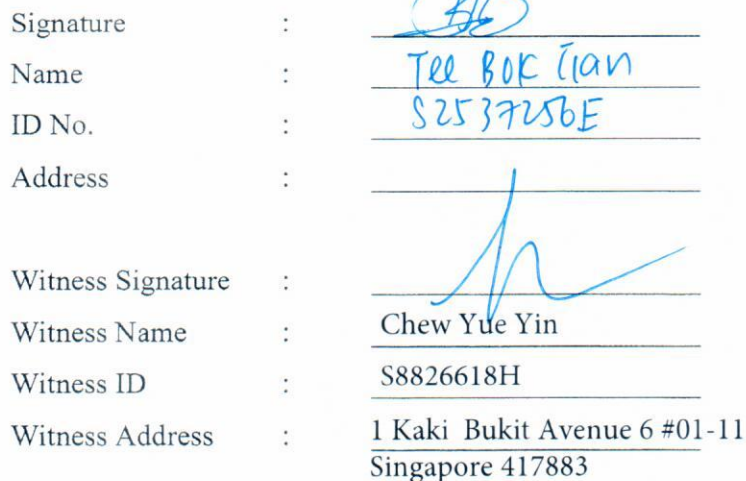 Signature :
Name : Tee Bok Tian
ID No. : S2537256E
Address :
Witness Signature :
Witness Name : Chew Yue Yin
Witness ID : S8826618H
Witness Address : 1 Kaki Bukit Avenue 6 #01-11
Singapore 417883